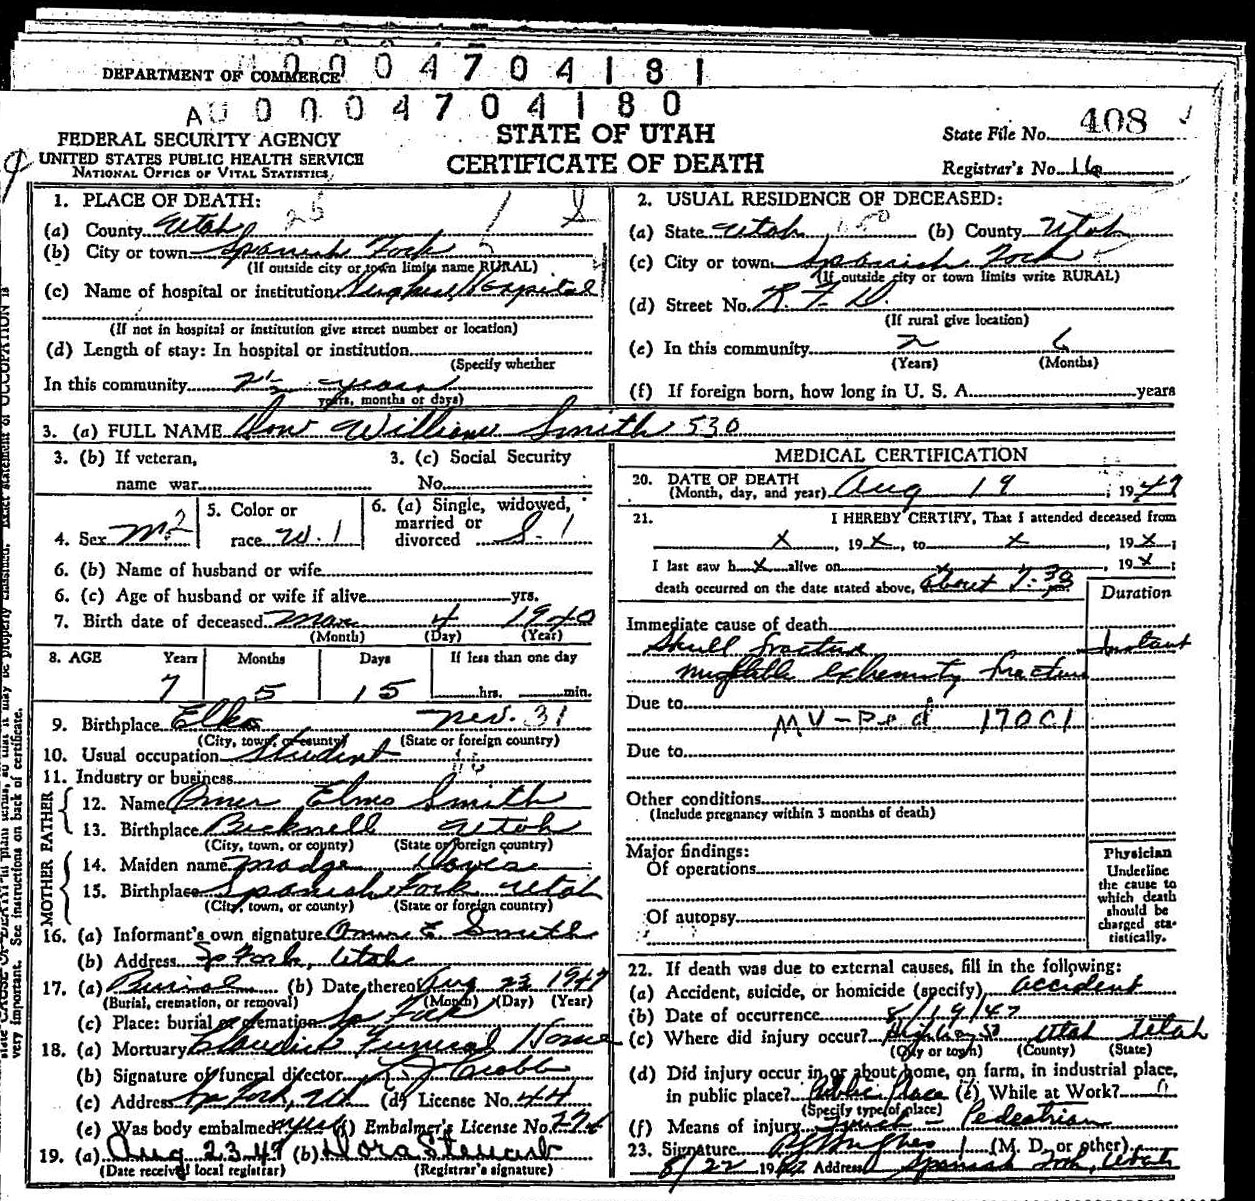 DEPARTMENT OF COMMERCE 0004704181
A 00004704180
FEDERAL SECURITY AGENCY
UNITED STATES PUBLIC HEALTH SERVICE
NATIONAL OFFICE OF VITAL STATISTICS
STATE OF UTAH
CERTIFICATE OF DEATH
State File No. 408
Registrar's No. 16
1. PLACE OF DEATH: 25
(a) County Utah
(b) City or town Spanish Fork
(If outside city or town limits name RURAL)
(c) Name of hospital or institution Hughes Hospital
(If not in hospital or institution give street number or location)
(d) Length of stay: In hospital or institution
(Specify whether
In this community 2½ years
years, months or days)
2. USUAL RESIDENCE OF DECEASED:
(a) State Utah (b) County Utah
(c) City or town Spanish Fork
(If outside city or town limits write RURAL)
(d) Street No. R. F. D.
(If rural give location)
(e) In this community 2 6
(Years) (Months)
(f) If foreign born, how long in U. S. A. years
3. (a) FULL NAME Don William Smith 530
3. (b) If veteran, 3. (c) Social Security
name war No.
4. Sex M. 2 5. Color or race W. 1 6. (a) Single, widowed, married or divorced S. 1
6. (b) Name of husband or wife
6. (c) Age of husband or wife if alive yrs.
7. Birth date of deceased Mar 4 1940
(Month) (Day) (Year)
8. AGE Years Months Days If less than one day
7 5 15 hrs. min.
9. Birthplace Elko Nev. 31
(City, town, or county) (State or foreign country)
10. Usual occupation Student
11. Industry or business
FATHER
12. Name Omer Elmo Smith
13. Birthplace Bicknell Utah
(City, town, or county) (State or foreign country)
MOTHER
14. Maiden name Madge Davis
15. Birthplace Spanish Fork Utah
(City, town, or county) (State or foreign country)
16. (a) Informant's own signature Omer E. Smith
(b) Address Sp Fork, Utah
17. (a) Burial (b) Date thereof Aug 23 1947
(Burial, cremation, or removal) (Month) (Day) (Year)
(c) Place: burial or cremation Sp Fork
18. (a) Mortuary Claudin Funeral Home
(b) Signature of funeral director
(c) Address Sp Fork, Ut (d) License No. 44
(e) Was body embalmed yes (f) Embalmer's License No. 276
19. (a) Aug 23 47 (b) Dora Stewart
(Date received local registrar) (Registrar's signature)
MEDICAL CERTIFICATION
20. DATE OF DEATH
(Month, day, and year) Aug 19, 1947
21. I HEREBY CERTIFY, That I attended deceased from
x, 19x, to x, 19x;
I last saw h x alive on x, 19x;
death occurred on the date stated above, about 7:30
Duration
Immediate cause of death
Skull fracture Instant
multiple extremity fracture
Due to
MV-Ped 170C1
Due to
Other conditions
(Include pregnancy within 3 months of death)
Major findings:
Of operations
Of autopsy
Physician
Underline
the cause to
which death
should be
charged sta-
tistically.
22. If death was due to external causes, fill in the following:
(a) Accident, suicide, or homicide (specify) Accident
(b) Date of occurrence 8/19/47
(c) Where did injury occur? Highway Utah Utah
(City or town) (County) (State)
(d) Did injury occur in or about home, on farm, in industrial place,
in public place? Public Place (e) While at Work?
(Specify type of place)
(f) Means of injury Truck - Pedestrian
23. Signature Hughes (M. D. or other)
8/22 1947 Address Spanish Fork, Utah
very important. See instructions on back of certificate.